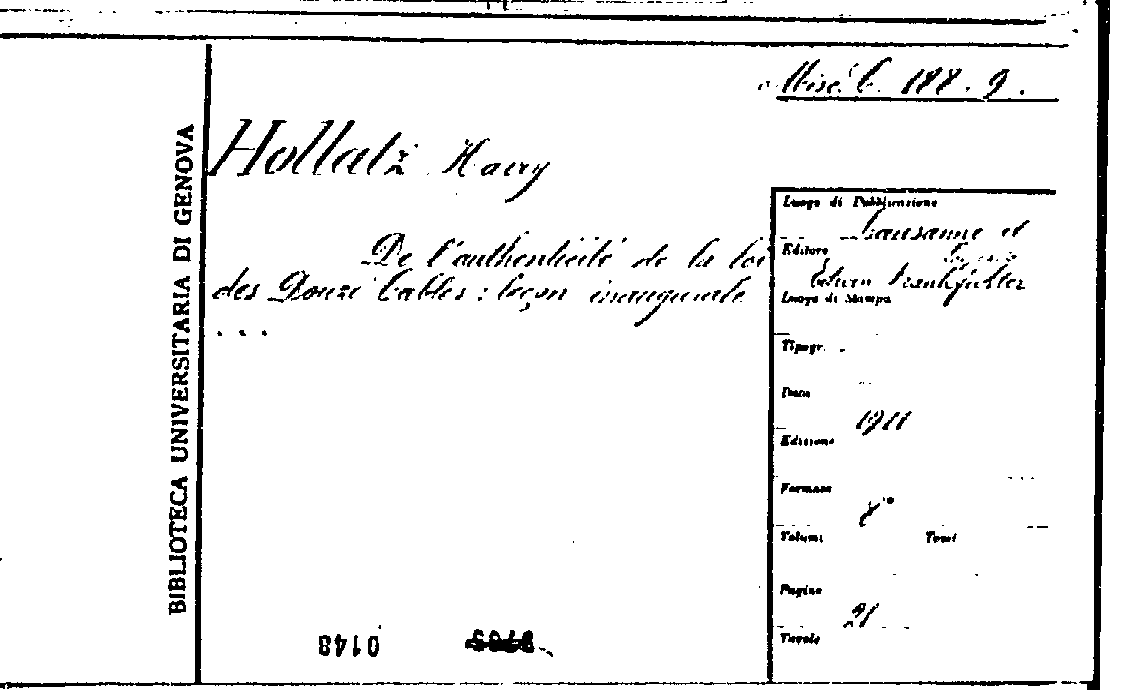 Misc. C. 188. 9.
Hollatz Harry
De l'authenticité de la loi
des Douze Tables : leçon inaugurale
. . .
BIBLIOTECA UNIVERSITARIA DI GENOVA
Luogo di Pubblicazione
Lausanne et
Editore
Edwin Frankfurter
Luogo di Stampa
Tipogr.
Data
1911
Edizione
Formato
8°
Volumi Tomi
Pagine
21
Tavole
0148